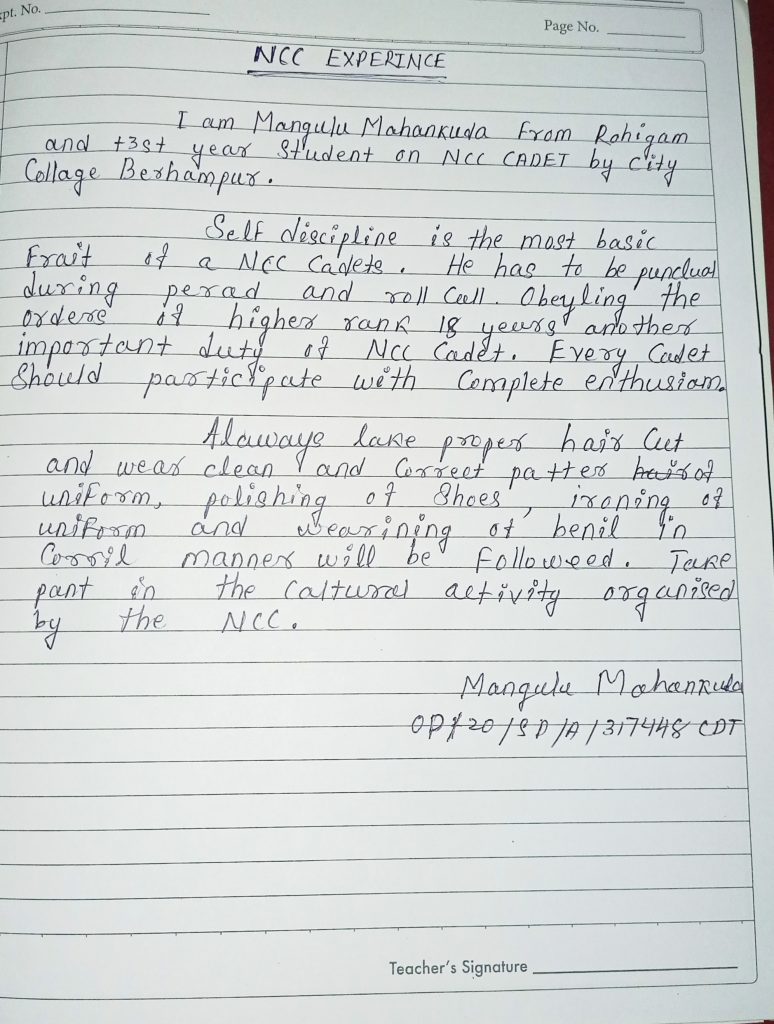 pt. No.
Page No.
NCC EXPERINCE
I am Mangulu Mahankuda From Rohigam
and +3st year Student on NCC CADET by City
Collage Berhampur.
Self discipline is the most basic
Frait of a NCC Cadets. He has to be punclual
during perad and roll Call. Obeyling the
orders of higher rank 18 years another
important duty of NCC Cadet. Every Cadet
Should participate with Complete enthusiam.
Alaways lake proper hair Cut
and wear clean and Correct patter hair of
uniForm, polishing of Shoes, ironing of
uniForm and wearining of benil in
Corril manner will be Followeed. Take
pant in the Caltural activity organised
by the NCC.
Mangulu Mahankuda
OD/20/SD/A/317448 CDT
Teacher's Signature